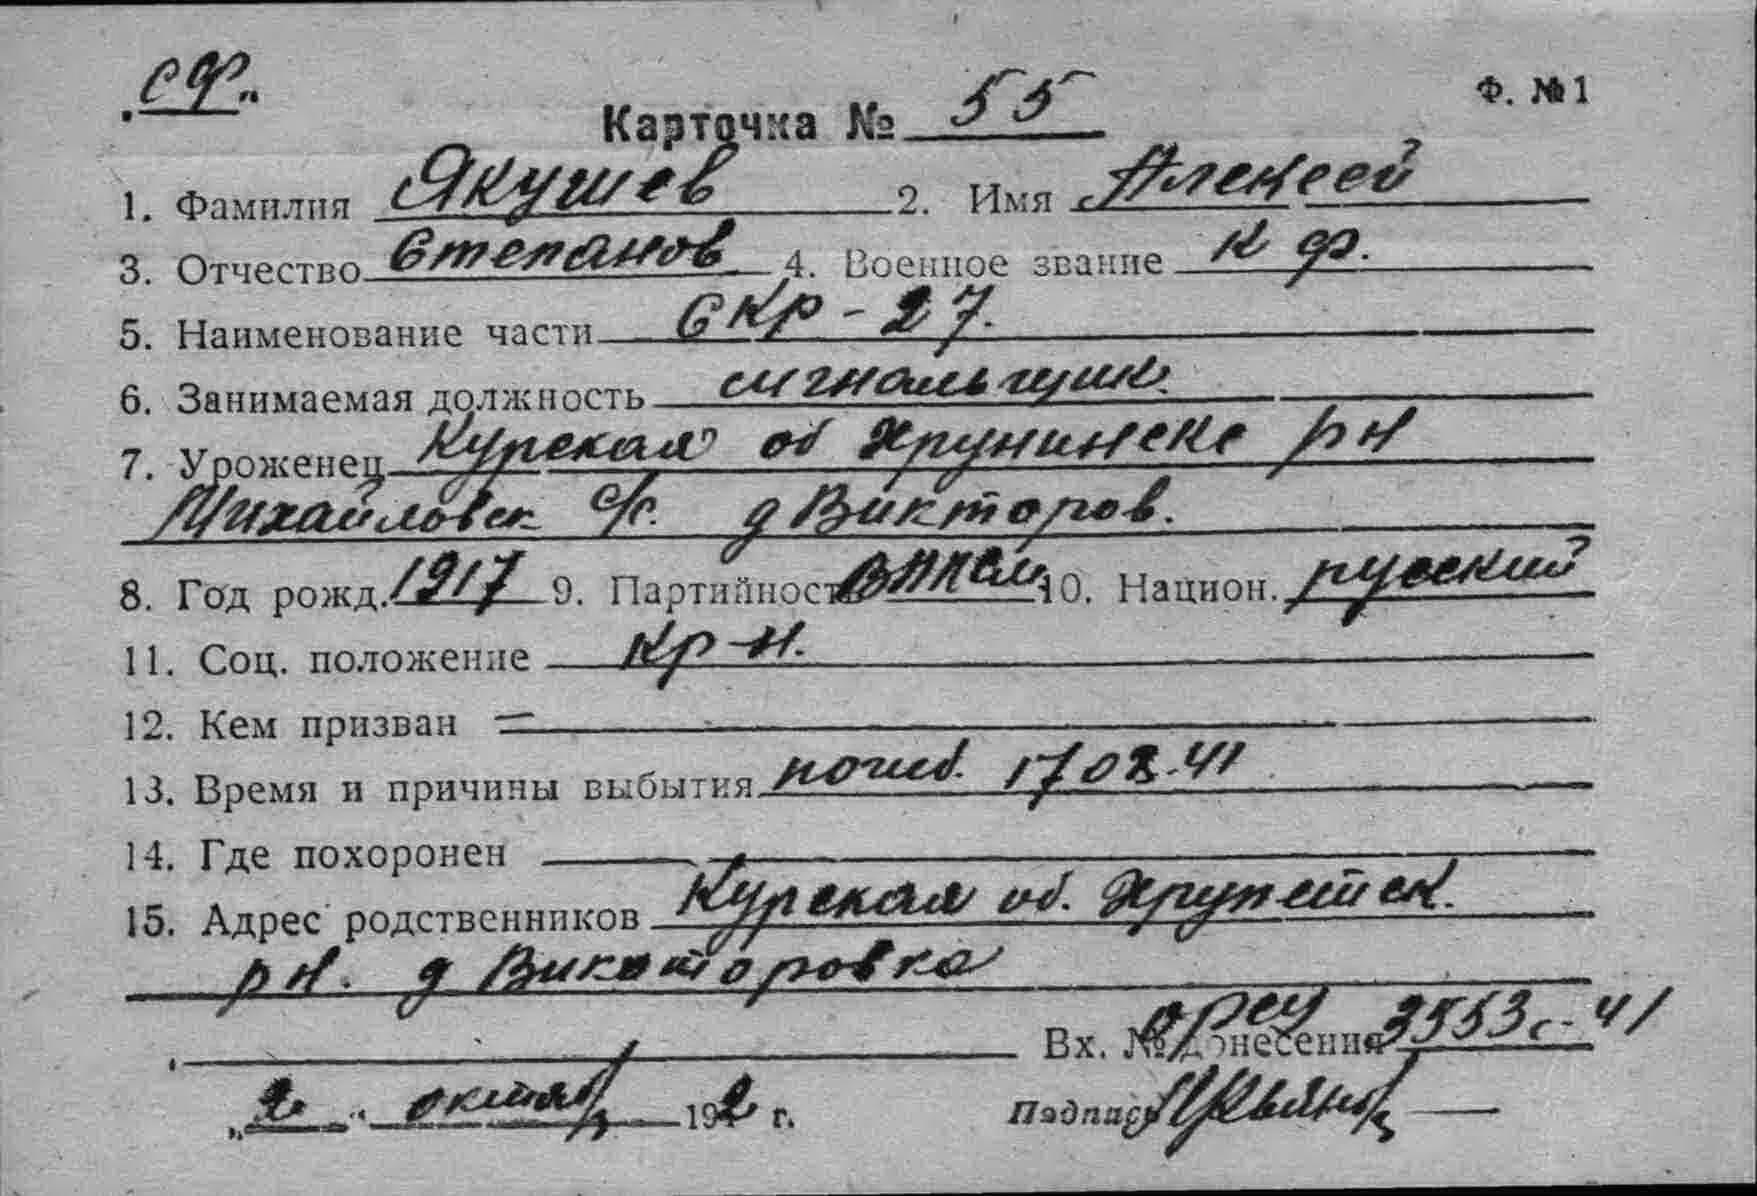 СФ.
Ф. №1
Карточка № 55
1. Фамилия Якушев 2. Имя Алексей
3. Отчество Степанов 4. Военное звание к ф.
5. Наименование части СКР-27.
6. Занимаемая должность сигнальщик.
7. Уроженец Курская об рн
Михайловск с/с. д Викторов.
8. Год рожд. 1917 9. Партийность 10. Национ. русский
11. Соц. положение кр-н.
12. Кем призван —
13. Время и причины выбытия погиб. 17 08.41
14. Где похоронен
15. Адрес родственников Курская об.
рн. д Викторовка
Вх. № донесения 3553с-41
„2“ октяб 1942 г. Подпись